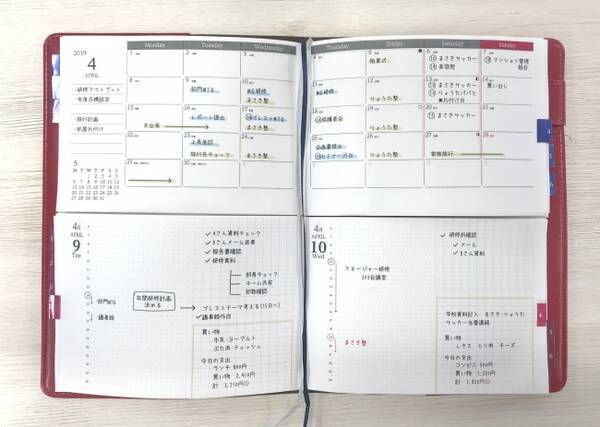 2019
4
APRIL
Monday
Tuesday
Wednesday
Thursday
Friday
Saturday
Sunday
1
2
3
4
5
6
7
始業式
まさきサッカー
美容院
マンション管理
組合
・研修アウトプット
8
9
10
11
12
13
14
部門MTG
まさき塾
りょうた塾
まさきサッカー
りょうたパパと
買い出し
・旅行計画
・部屋片付け
15
16
17
18
19
20
21
大阪
レポート提出
ブレストMTG
まさき塾
保護者会
りょうた塾
まさきサッカー
22
23
24
25
26
27
28
上長面談
旅行先チェック
まさき塾
企画書提出
りょうた塾
家族旅行
29
30
5
M T W T F S S
1 2 3 4 5
6 7 8 9 10 11 12
13 14 15 16 17 18 19
20 21 22 23 24 25 26
27 28 29 30 31
4月
APRIL
9
Tue
✓Aさん資料チェック
✓Bさんメール返事
✓報告書確認
✓研修資料
部長チェック
チーム共有
印刷確認
部門MTG
議事録
年間研修計画
決める
ブレストテーマ考える(15日へ)
✓議事録作成
買い物
牛乳・ヨーグルト
ぶた肉・ティッシュ
今日の支出
ランチ 800円
買い物 2,410円
計 3,210円
4月
APRIL
10
Wed
✓研修前確認
✓メール
✓Bさん資料
マネージャー研修
まさき塾
学校資料記入 まさき・りょうた
サッカー当番連絡
買い物
レタス とり肉 チーズ
今日の支出
コンビニ 500円
買い物 1,320円
計 1,820円